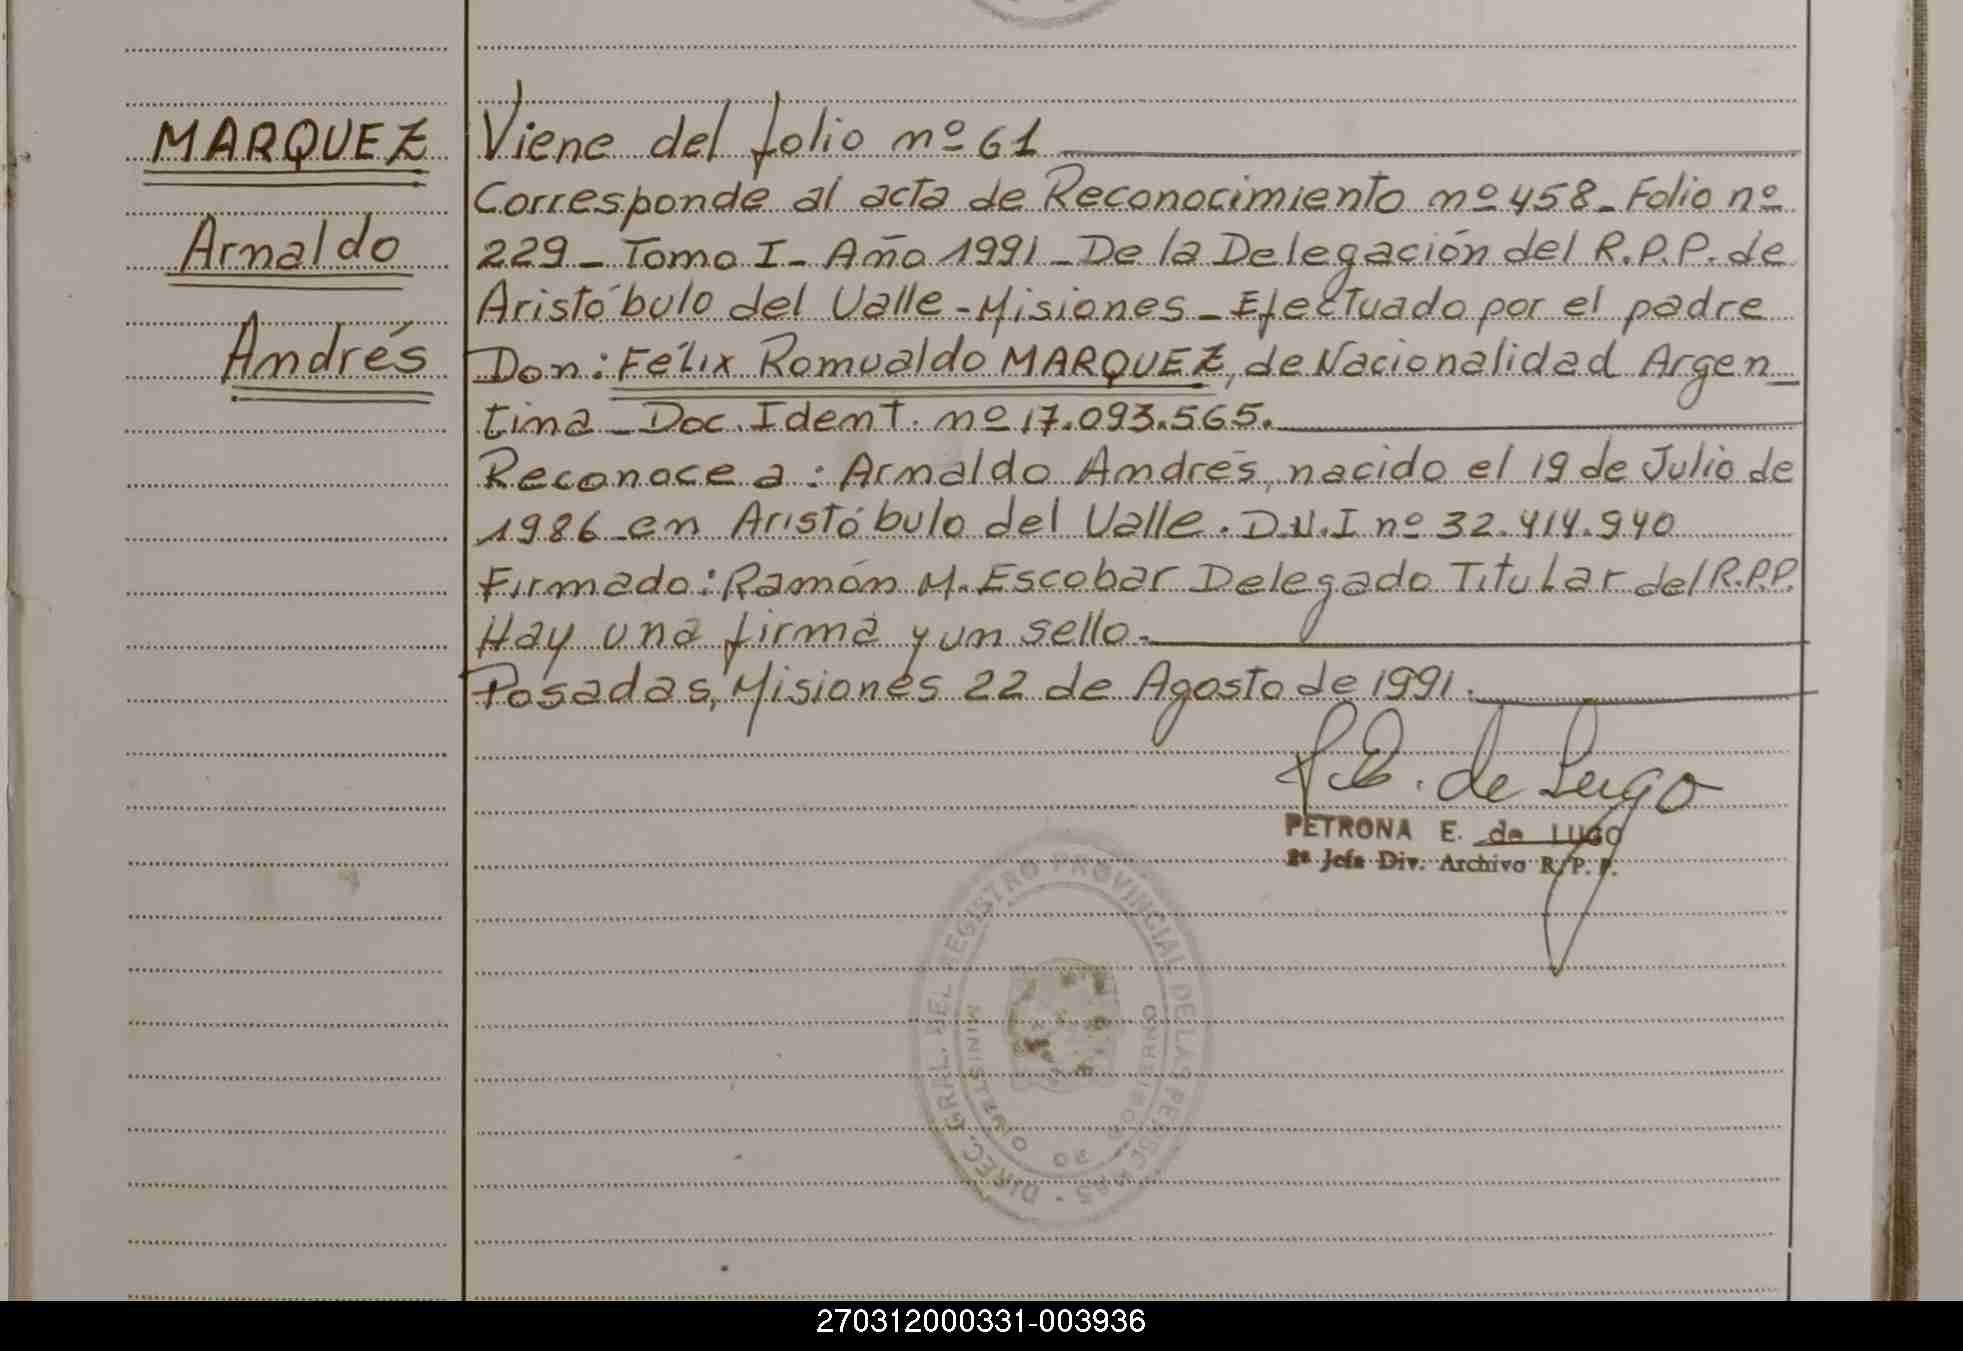 MARQUEZ
Arnaldo
Andrés
Viene del folio nº 61
Corresponde al acta de Reconocimiento nº 458_ Folio nº
229_ Tomo I_ Año 1991_ De la Delegación del R.P.P. de
Aristóbulo del Valle-Misiones_ Efectuado por el padre
Don: Félix Romualdo MARQUEZ, de Nacionalidad Argen_
tina_ Doc. Ident. nº 17.093.565.
Reconoce a: Arnaldo Andrés, nacido el 19 de Julio de
1986_ en Aristóbulo del Valle. D.N.I nº 32.414.940
Firmado: Ramón M. Escobar Delegado Titular del R.P.P.
Hay una firma y un sello.
Posadas, Misiones 22 de Agosto de 1991.
P.E. de Lugo
PETRONA E. de LUGO
2ª Jefa Div. Archivo R.P.P.
DIREC. GRAL. DEL REGISTRO PROVINCIAL DE LAS PERSONAS
MINISTERIO DE GOBIERNO
270312000331-003936